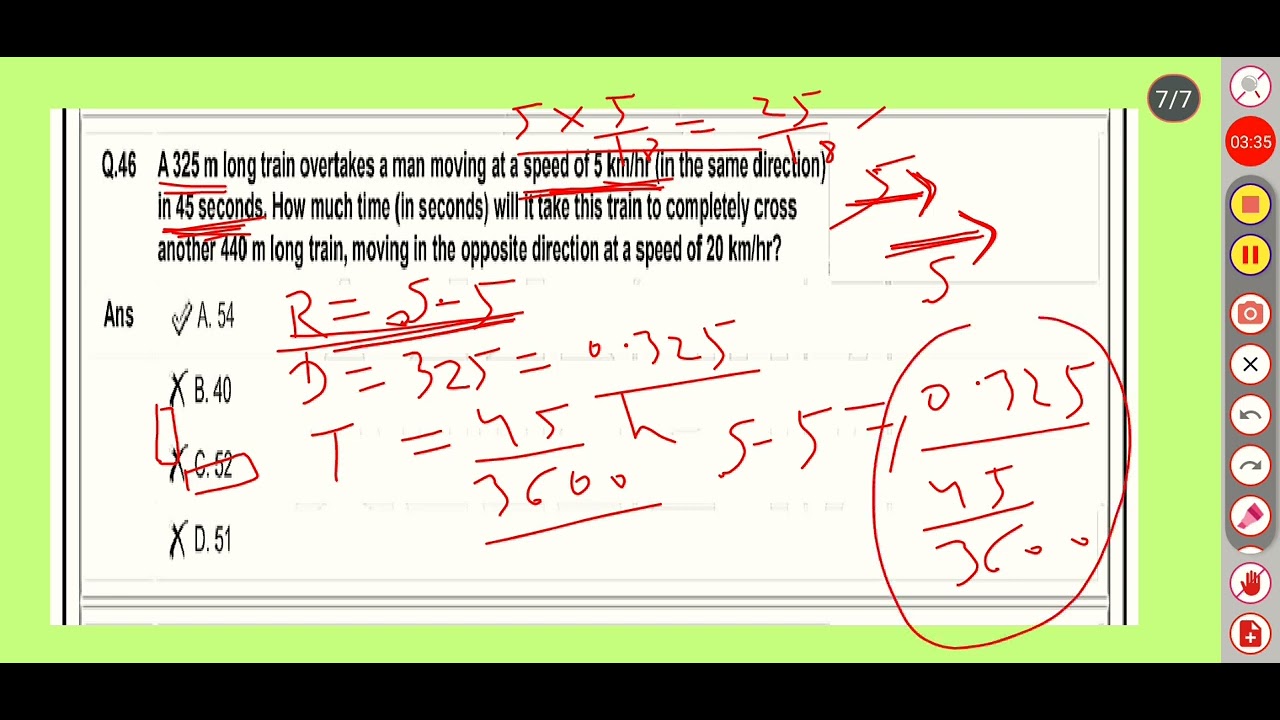 7/7
03:35
5 × 5/18 = 25/18
Q.46 A 325 m long train overtakes a man moving at a speed of 5 km/hr (in the same direction)
in 45 seconds. How much time (in seconds) will it take this train to completely cross
another 440 m long train, moving in the opposite direction at a speed of 20 km/hr?
5
S
Ans A. 54
R = S - 5
D = 325 = 0.325
B. 40
T = 45/3600 h
S - 5 = 0.325 / 45/3600
C. 52
D. 51